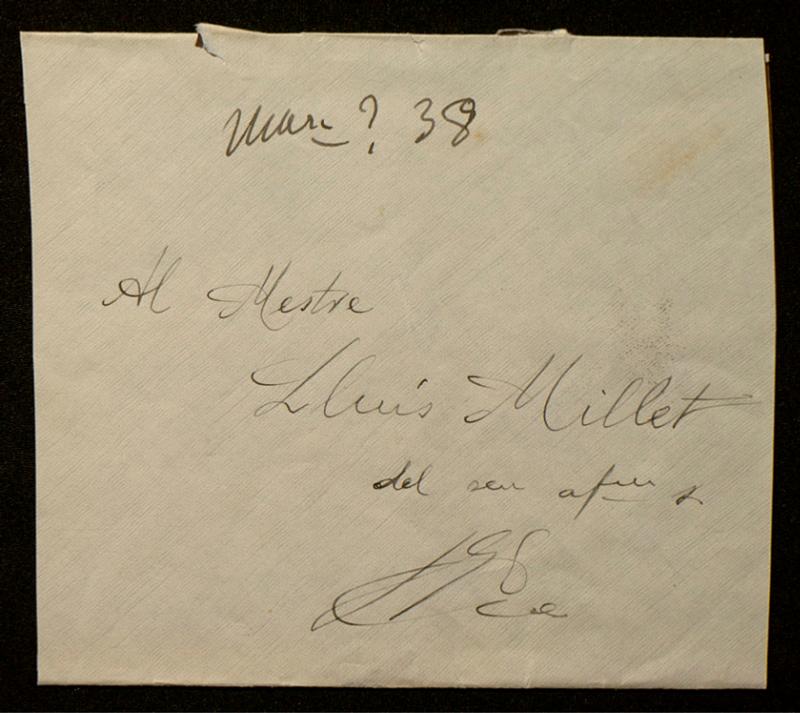 Març ? 38
Al Mestre
Lluís Millet
del seu afm